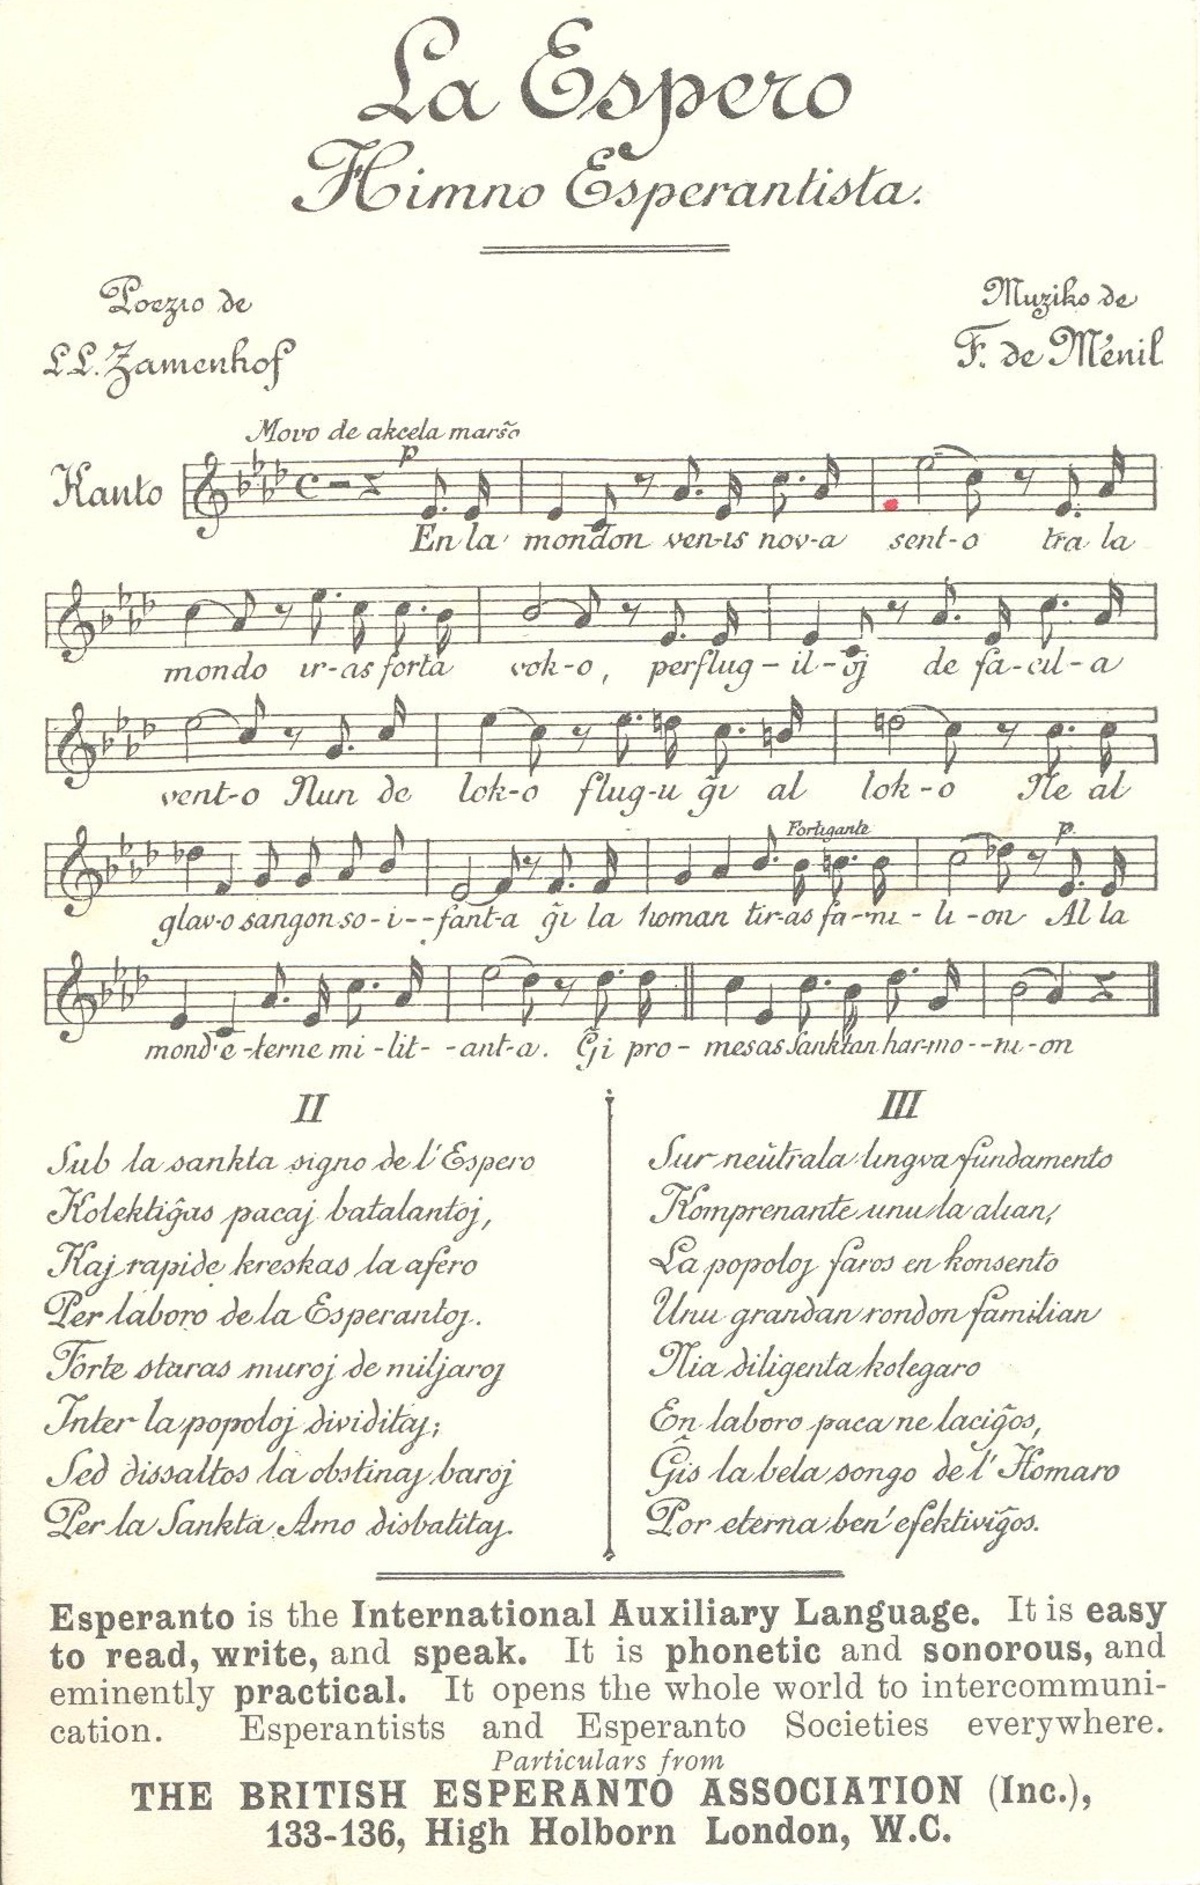 La Espero
Himno Esperantista.
Poezio de
L.L. Zamenhof
Muziko de
F. de Ménil
Movo de akcela marŝo
p
Kanto
En la mondon ven-is nov-a sent-o tra la
mondo ir-as forta vok-o, per flug-il-oj de facil-a
vent-o Nun de lok-o flug-u ĝi al lok-o Ne al
Fortigante p.
glav-o sangon so-i--fant-a ĝi la homan tir-as fa-mi-li-on Al la
mond' e-terne mi-lit--ant-a. Ĝi pro-mesas Sanktan har-mo--ni-on
II
Sub la sankta signo de l' Espero
Kolektiĝas pacaj batalantoj,
Kaj rapide kreskas la afero
Per laboro de la Esperantoj.
Forte staras muroj de miljaroj
Inter la popoloj dividitaj;
Sed dissaltos la obstinaj baroj
Per la Sankta Amo disbatitaj.
III
Sur neŭtrala lingva fundamento
Komprenante unu la alian,
La popoloj faros en konsento
Unu grandan rondon familian
Nia diligenta kolegaro
En laboro paca ne laciĝos,
Ĝis la bela songo de l' Homaro
Por eterna ben' efektiviĝos.
Esperanto is the International Auxiliary Language. It is easy
to read, write, and speak. It is phonetic and sonorous, and
eminently practical. It opens the whole world to intercommuni-
cation. Esperantists and Esperanto Societies everywhere.
Particulars from
THE BRITISH ESPERANTO ASSOCIATION (Inc.),
133-136, High Holborn London, W.C.